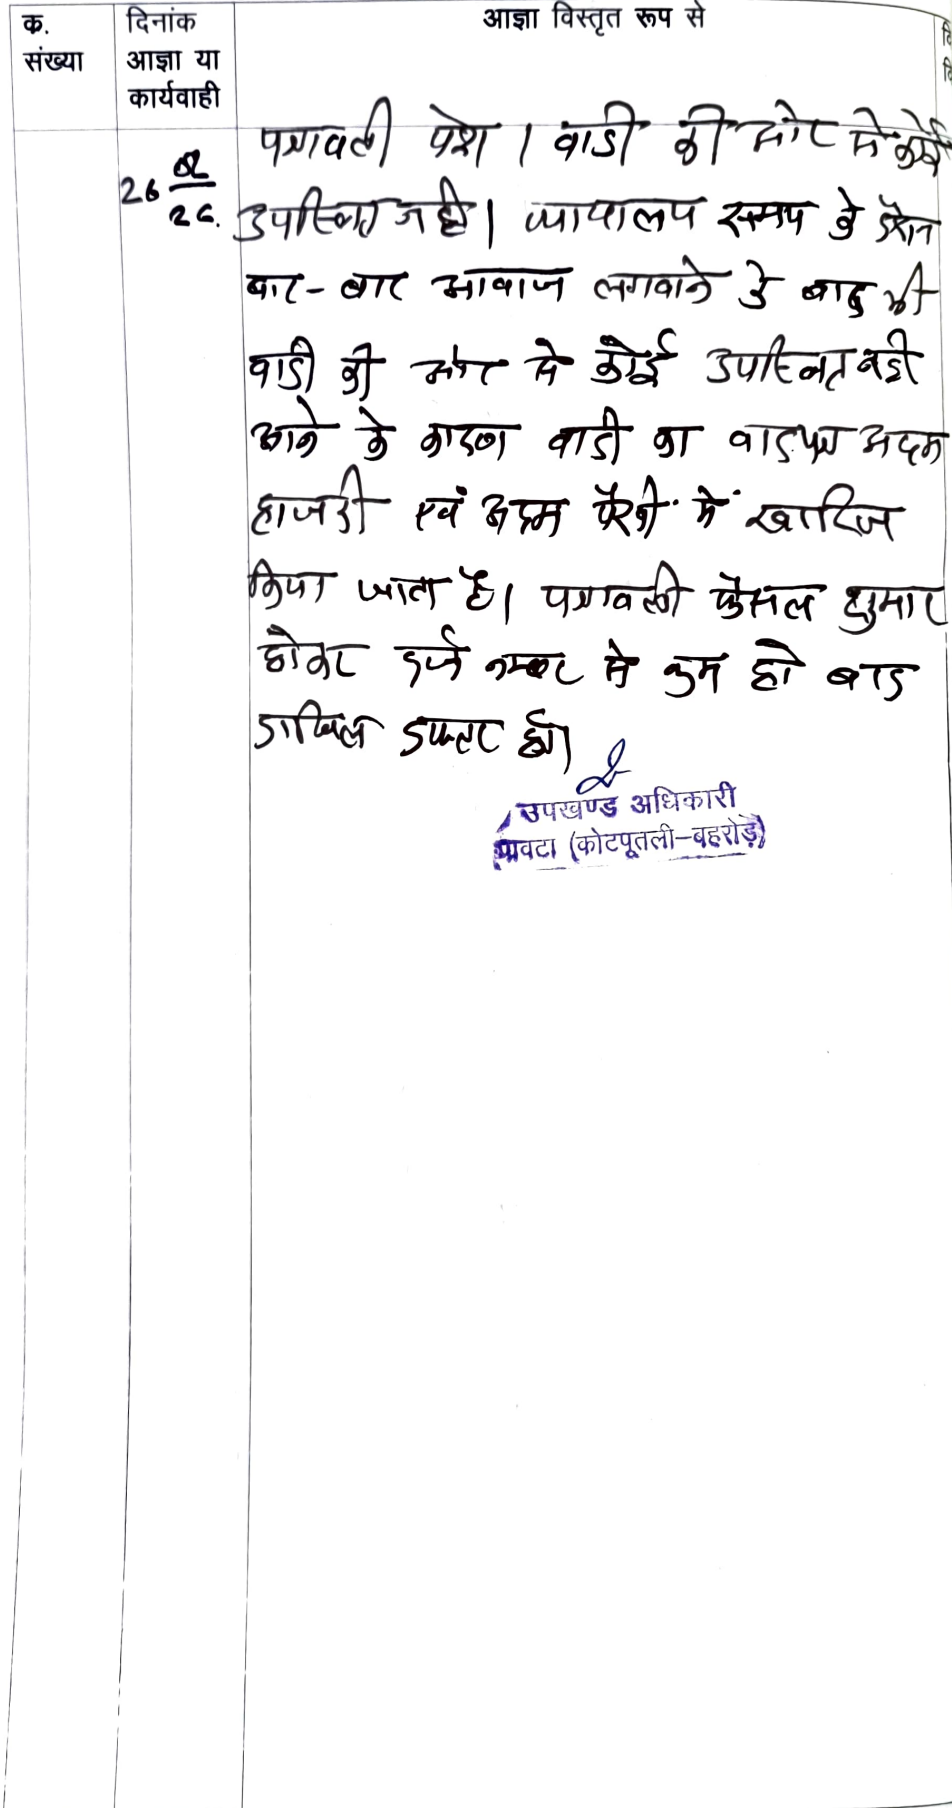 क.
संख्या
दिनांक
आज्ञा या
कार्यवाही
आज्ञा विस्तृत रूप से
26 02/26.
पत्रावली पेश । वादी की ओर से कोई
उपस्थित नही। न्यायालय समय के दौरान
बार-बार आवाज लगवाने के बाद भी
वादी की ओर से कोई उपस्थित नही
आने के कारण वादी का वादपत्र अदम
हाजरी एवं अदम पैरवी में खारिज
किया जाता है। पत्रावली फैसल शुमार
होकर दर्ज नम्बर से कम हो बाद
दाखिल दफ्तर हो।
उपखण्ड अधिकारी
पावटा (कोटपूतली-बहरोड़)